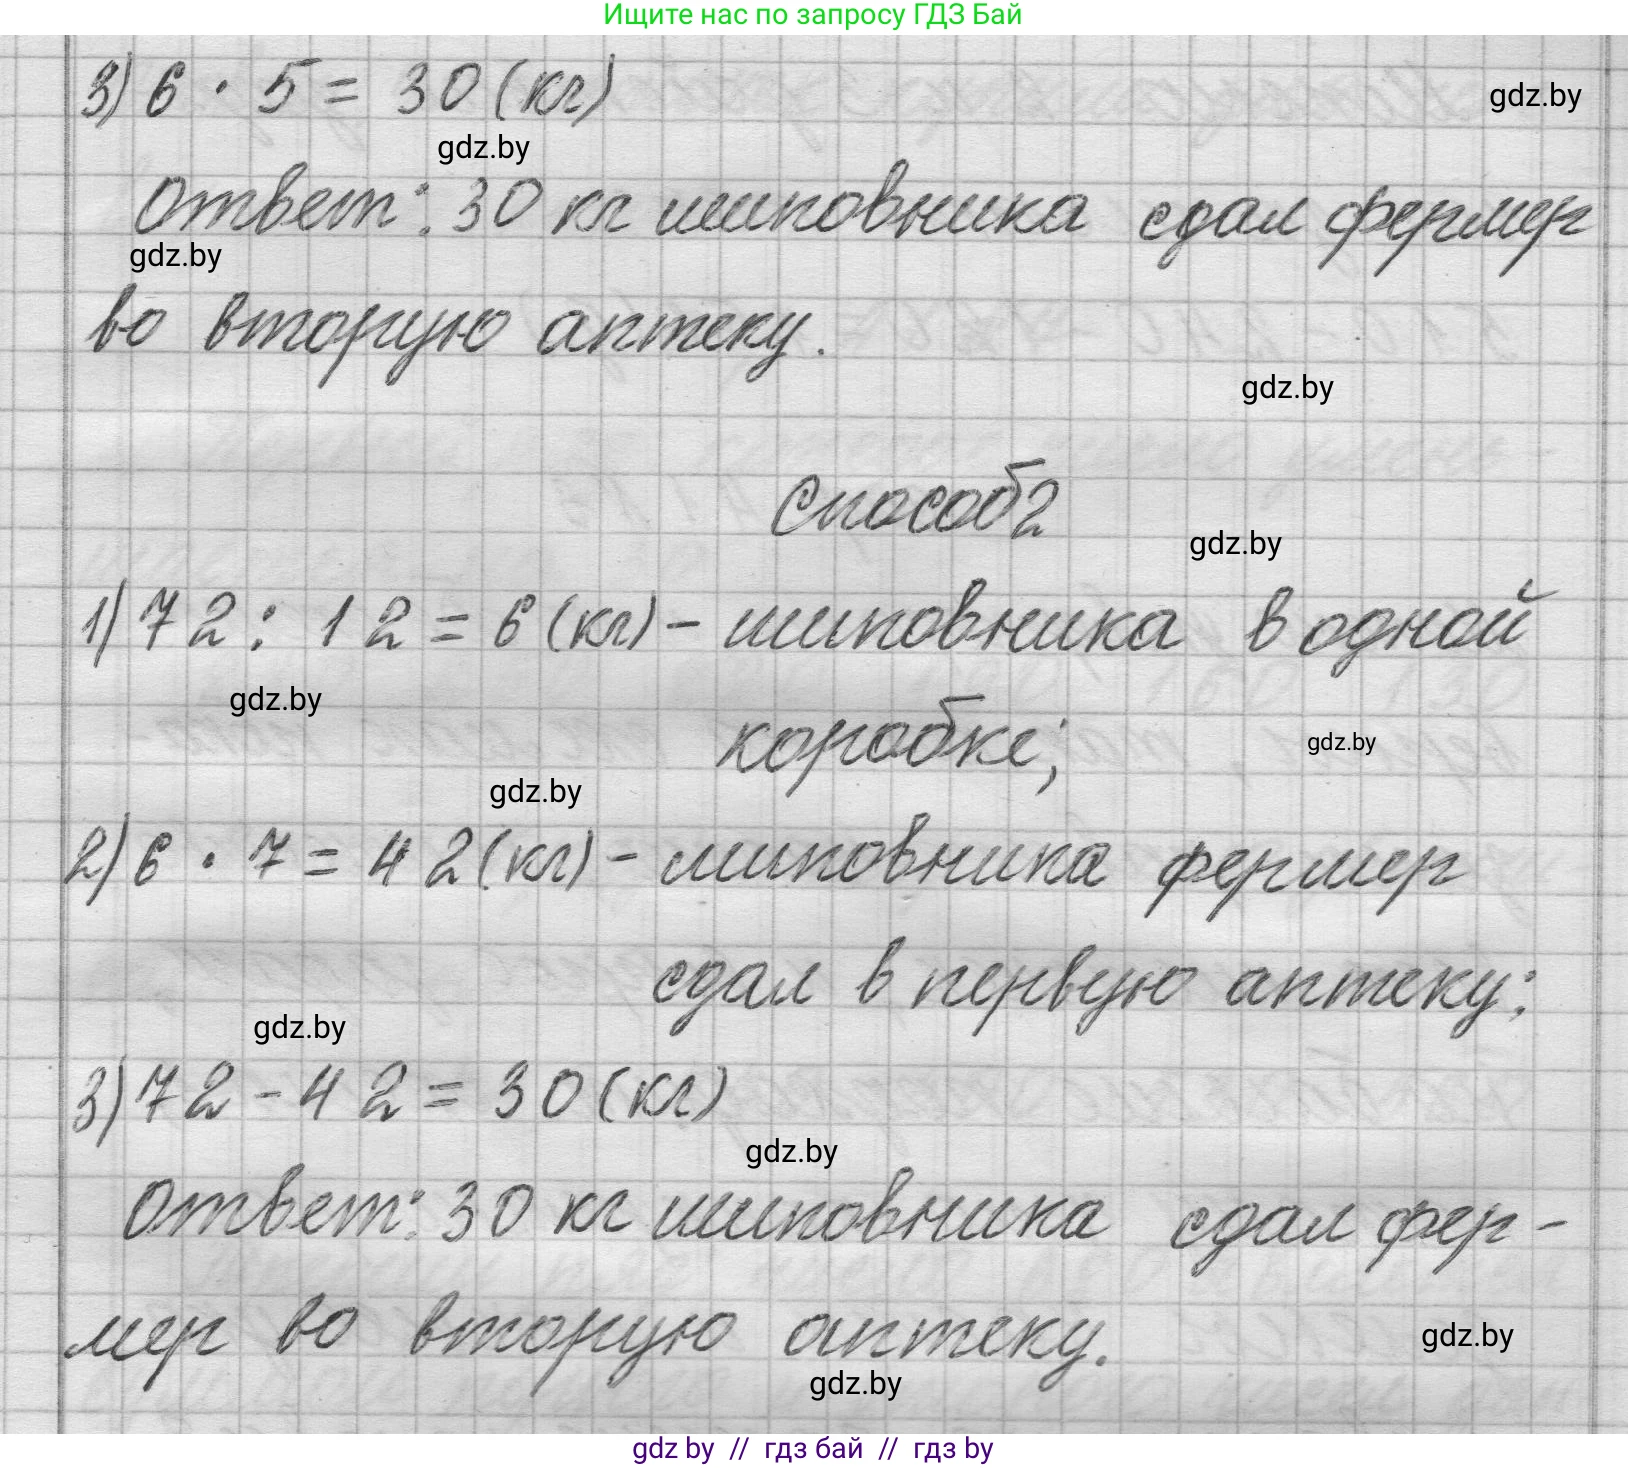 Ищите нас по запросу ГДЗ Бай
3) 6 · 5 = 30 (кг)
gdz.by
gdz.by
Ответ: 30 кг шиповника сдал фермер
gdz.by
во вторую аптеку.
gdz.by
Способ 2
gdz.by
1) 72 : 12 = 6 (кг) – шиповника в одной
gdz.by
коробке;
gdz.by
gdz.by
2) 6 · 7 = 42 (кг) – шиповника фермер
сдал в первую аптеку;
gdz.by
3) 72 – 42 = 30 (кг)
gdz.by
Ответ: 30 кг шиповника сдал фер-
мер во вторую аптеку.
gdz.by
gdz.by
gdz by // гдз бай // гдз by